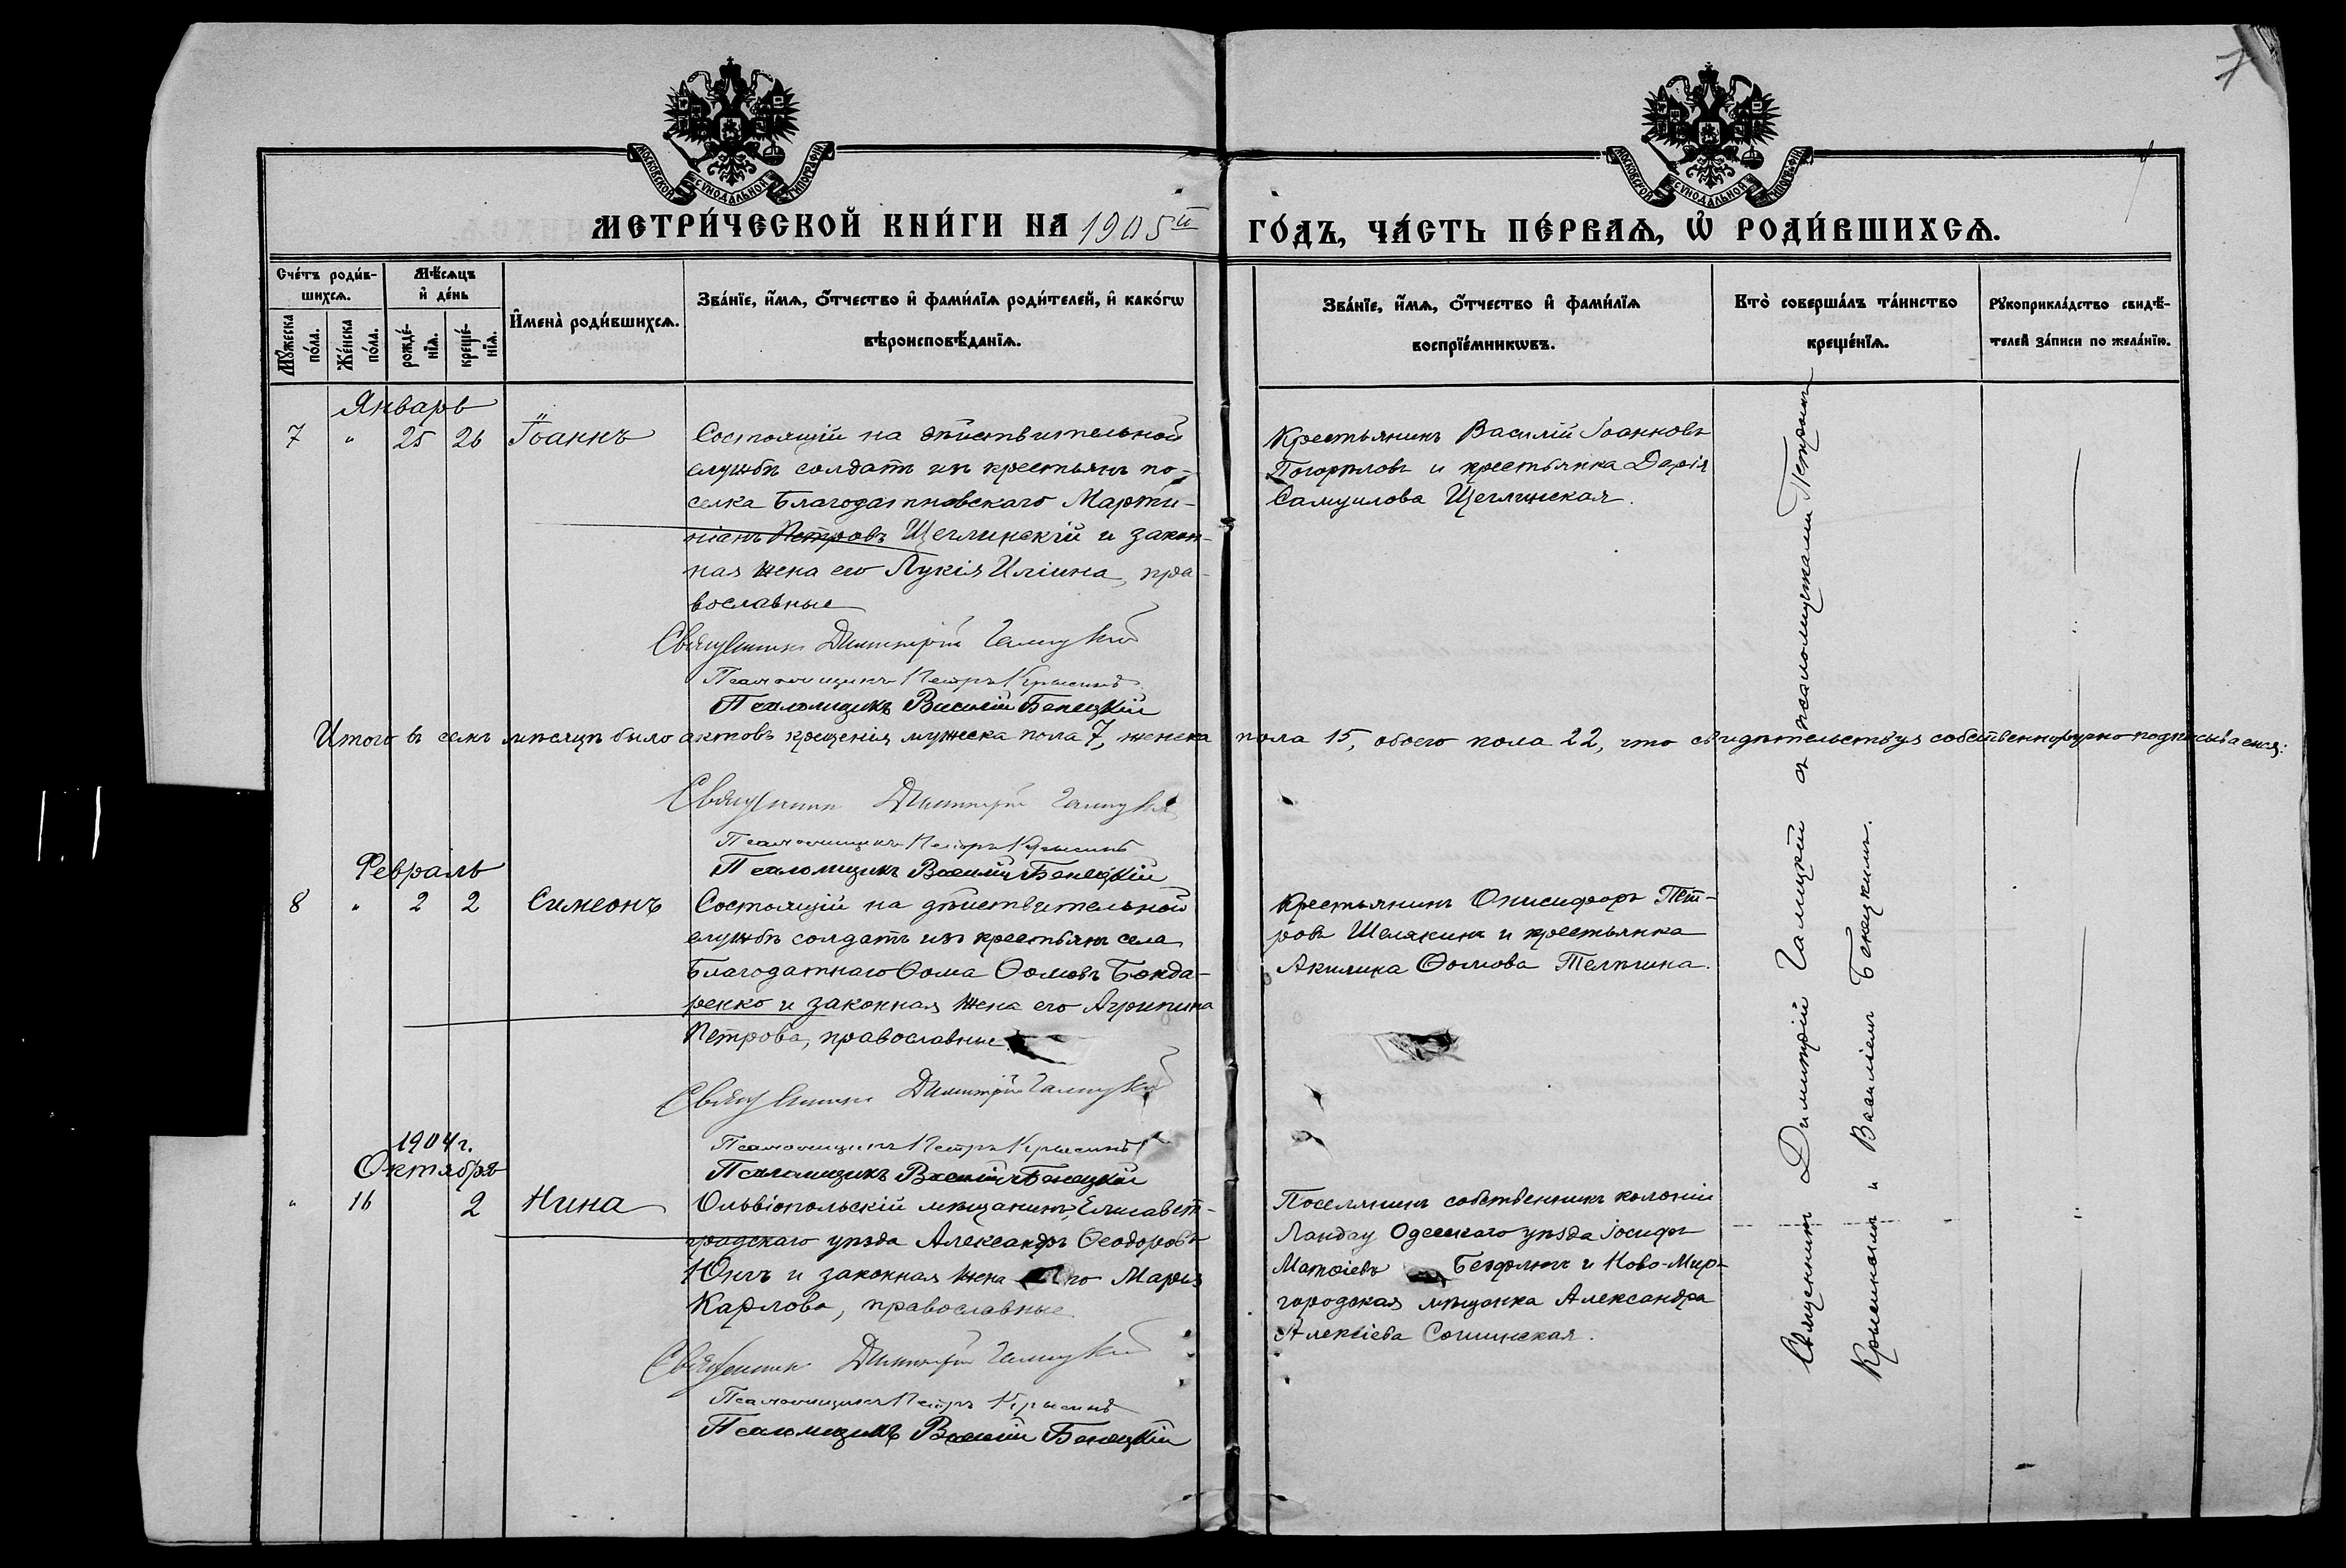 7
МОСКОВСКОЙ СѴНОДАЛЬНОЙ ТИПОГРАФІИ
МОСКОВСКОЙ СѴНОДАЛЬНОЙ ТИПОГРАФІИ
МЕТРИ́ЧЕСКОЙ КНИ́ГИ НА 1905й ГО́ДЪ, ЧА́СТЬ ПЕ́РВАѦ, Ѽ РОДИ́ВШИХСѦ.
Сче́тъ роди́в-
шихсѧ.
Мꙋ́жеска
по́ла.
Же́нска
по́ла.
Мѣ́сѧцъ
и҆ де́нь
рожде́-
нїѧ.
креще́-
нїѧ.
И҆мена̀ роди́вшихсѧ.
Зва́нїе, и҆́мѧ, ѻ҆́тчество и҆ фами́лїѧ роди́телей, и҆ како́гѡ
вѣроисповѣ́данїѧ.
Зва́нїе, и҆́мѧ, ѻ҆́тчество и҆ фами́лїѧ
воспрїе́мникѡвъ.
Кто̀ соверша́лъ та́инство
креще́нїѧ.
Рꙋкоприкла́дство свидѣ́-
телей за́писи по жела́нїю.
Январь
7 " 25 26 Іоаннъ
Состоящій на дѣйствительной
службѣ солдатъ изъ крестьянъ по-
селка Благодатновскаго Марти-
ніанъ Петровъ Щеглинскій и закон-
ная жена его Лукія Иліина, пра-
вославные
Священникъ Димитрій Галицкій
Псаломщикъ Петръ Крысинъ
Псаломщикъ Василій Бенецкій
Крестьянинъ Василій Іоанновъ
Погорѣловъ и крестьянка Дарія
Самуилова Щеглинская.
Итого въ семъ мѣсяцѣ было актовъ крещенія мужеска пола 7, женска пола 15, обоего пола 22, что свидѣтельствуя собственноручно подписываемся:
Священникъ Димитрій Галицкій
Псаломщикъ Петръ Крысинъ
Псаломщикъ Василій Бенецкій
Февраль
8 " 2 2 Симеонъ
Состоящій на дѣйствительной
службѣ солдатъ изъ крестьянъ села
Благодатнаго Ѳома Ѳомовъ Бонда-
ренко и законная жена его Агрипина
Петрова, православные.
Священникъ Димитрій Галицкій
Псаломщикъ Петръ Крысинъ
Псаломщикъ Василій Бенецкій
Крестьянинъ Онисифоръ Пет-
ровъ Шелякинъ и крестьянка
Акилина Ѳомова Телѣгина.
1904 г.
Октября
" 16 2 Нина
Ольвіопольскій мѣщанинъ, Елисавет-
градскаго уѣзда Александръ Ѳеодоровъ
Юнгъ и законная жена его Марія
Карлова, православные
Священникъ Димитрій Галицкій
Псаломщикъ Петръ Крысинъ
Псаломщикъ Василій Бенецкій
Поселянинъ собственникъ колоніи
Ландау Одесскаго уѣзда Іосифъ
Матѳіевъ и Ново-Мир-
городская мѣщанка Александра
Алексіева
Священникъ Димитрій Галицкій съ псаломщиками Петромъ
Крысинымъ и Василіемъ Бенецкимъ.